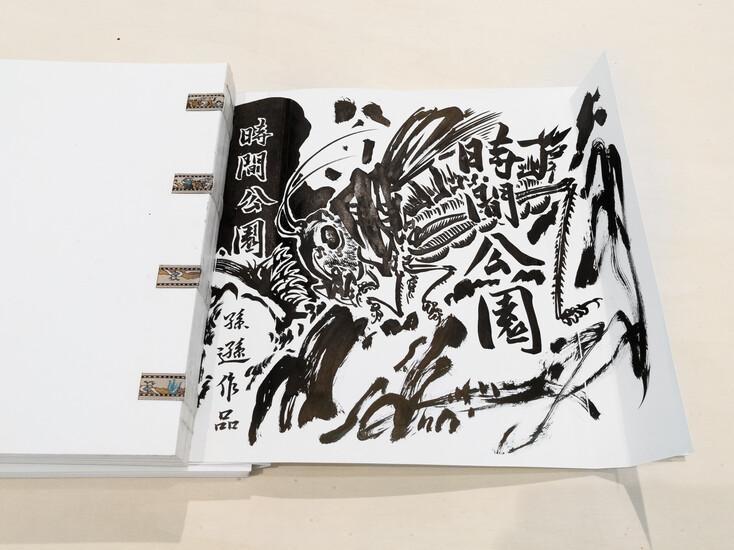 時間公園
孫遜作品
時間公園